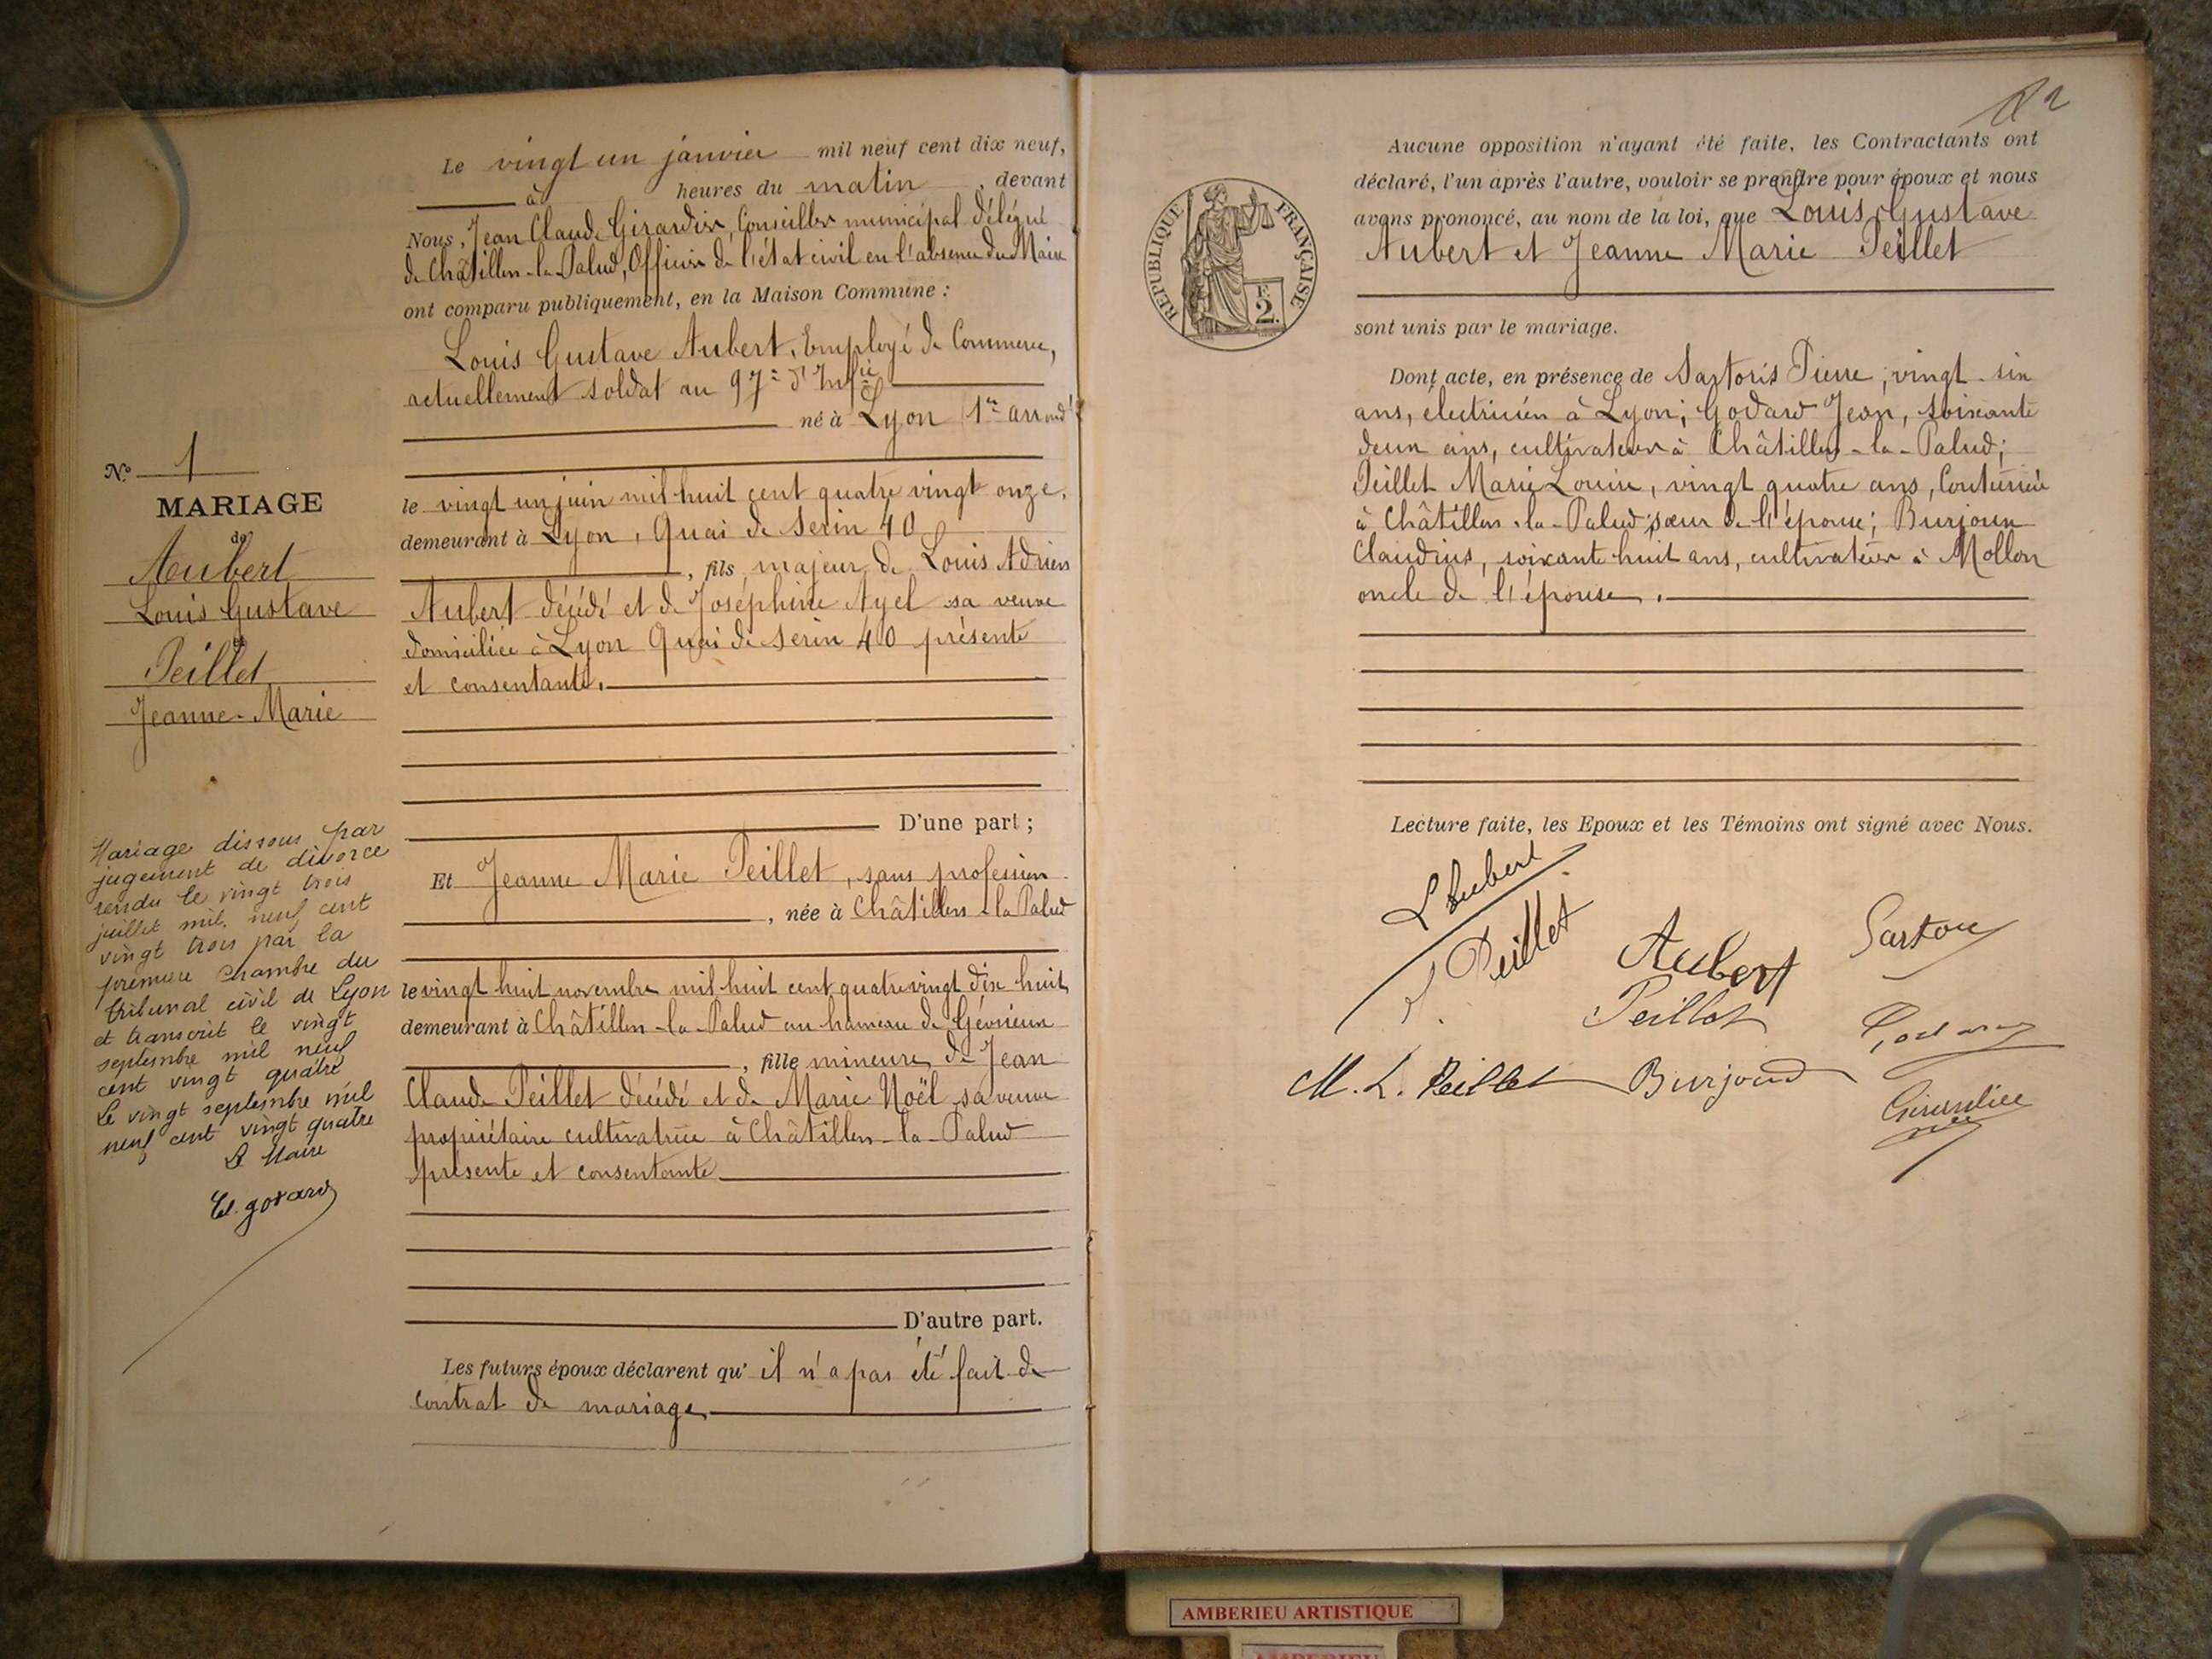 Le vingt un janvier mil neuf cent dix neuf,
à heures du matin, devant
Nous, Jean Claude Girardier, Conseiller municipal délégué
de Châtillon-la-Palud, Officier de l'état civil en l'absence du Maire
ont comparu publiquement, en la Maison Commune :
Louis Gustave Aubert, Employé de Commerce,
actuellement soldat au 97e d'Infie
né à Lyon (1er arrondt)
le vingt un juin mil huit cent quatre vingt onze,
demeurant à Lyon, Quai de Serin 40
, fils majeur de Louis Adrien
Aubert décédé et de Joséphine Ayel sa veuve
domiciliée à Lyon Quai de Serin 40 présente
et consentante.
D'une part ;
Et Jeanne Marie Peillet, sans profession
, née à Châtillon-la-Palud
le vingt huit novembre mil huit cent quatre vingt dix huit
demeurant à Châtillon-la-Palud au hameau de Gévrieux
, fille mineure de Jean
Claude Peillet décédé et de Marie Noël sa veuve
propriétaire cultivatrice à Châtillon-la-Palud
présente et consentante
D'autre part.
Les futurs époux déclarent qu'il n'a pas été fait de
contrat de mariage
No 1
MARIAGE
de
Aubert
Louis Gustave
&
Peillet
Jeanne-Marie
Mariage dissous par
jugement de divorce
rendu le vingt trois
juillet mil neuf cent
vingt trois par la
première Chambre du
tribunal civil de Lyon
et transcrit le vingt
septembre mil neuf
cent vingt quatre
Le vingt septembre mil
neuf cent vingt quatre
Le Maire
godard
REPUBLIQUE FRANÇAISE
F.
2.
Aucune opposition n'ayant été faite, les Contractants ont
déclaré, l'un après l'autre, vouloir se prendre pour époux et nous
avons prononcé, au nom de la loi, que Louis Gustave
Aubert et Jeanne Marie Peillet
sont unis par le mariage.
Dont acte, en présence de Sartoris Pierre, vingt-six
ans, électricien à Lyon; Godard Jean, soixante
deux ans, cultivateur à Châtillon-la-Palud;
Peillet Marie Louise, vingt quatre ans, Couturière
à Châtillon-la-Palud, sœur de l'épouse; Burjoux
Claudius, soixante huit ans, cultivateur à Mollon
oncle de l'épouse.
Lecture faite, les Epoux et les Témoins ont signé avec Nous.
L Aubert
J. Peillet
Aubert
Sartori
Peillet
Godard
M. L. Peillet
Burjoud
AMBERIEU ARTISTIQUE
AMBERIEU